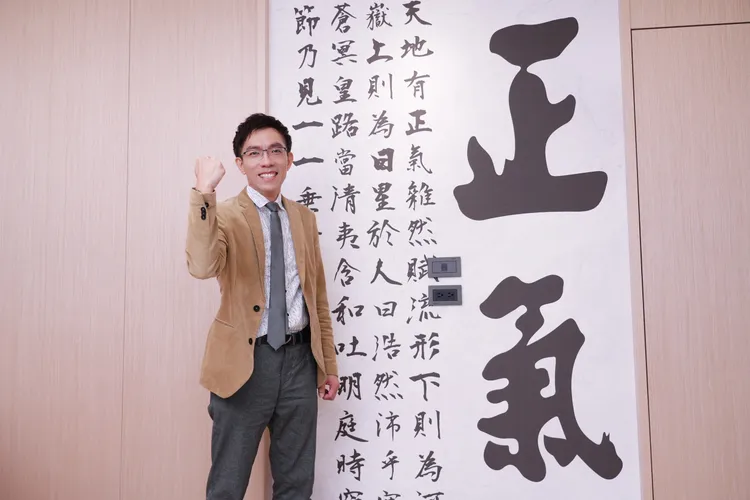 正氣
天地有正氣雜然賦流形下則為河
嶽上則為日星於人曰浩然沛乎
蒼冥皇路當清夷含和吐明庭時窮
節乃見一一垂